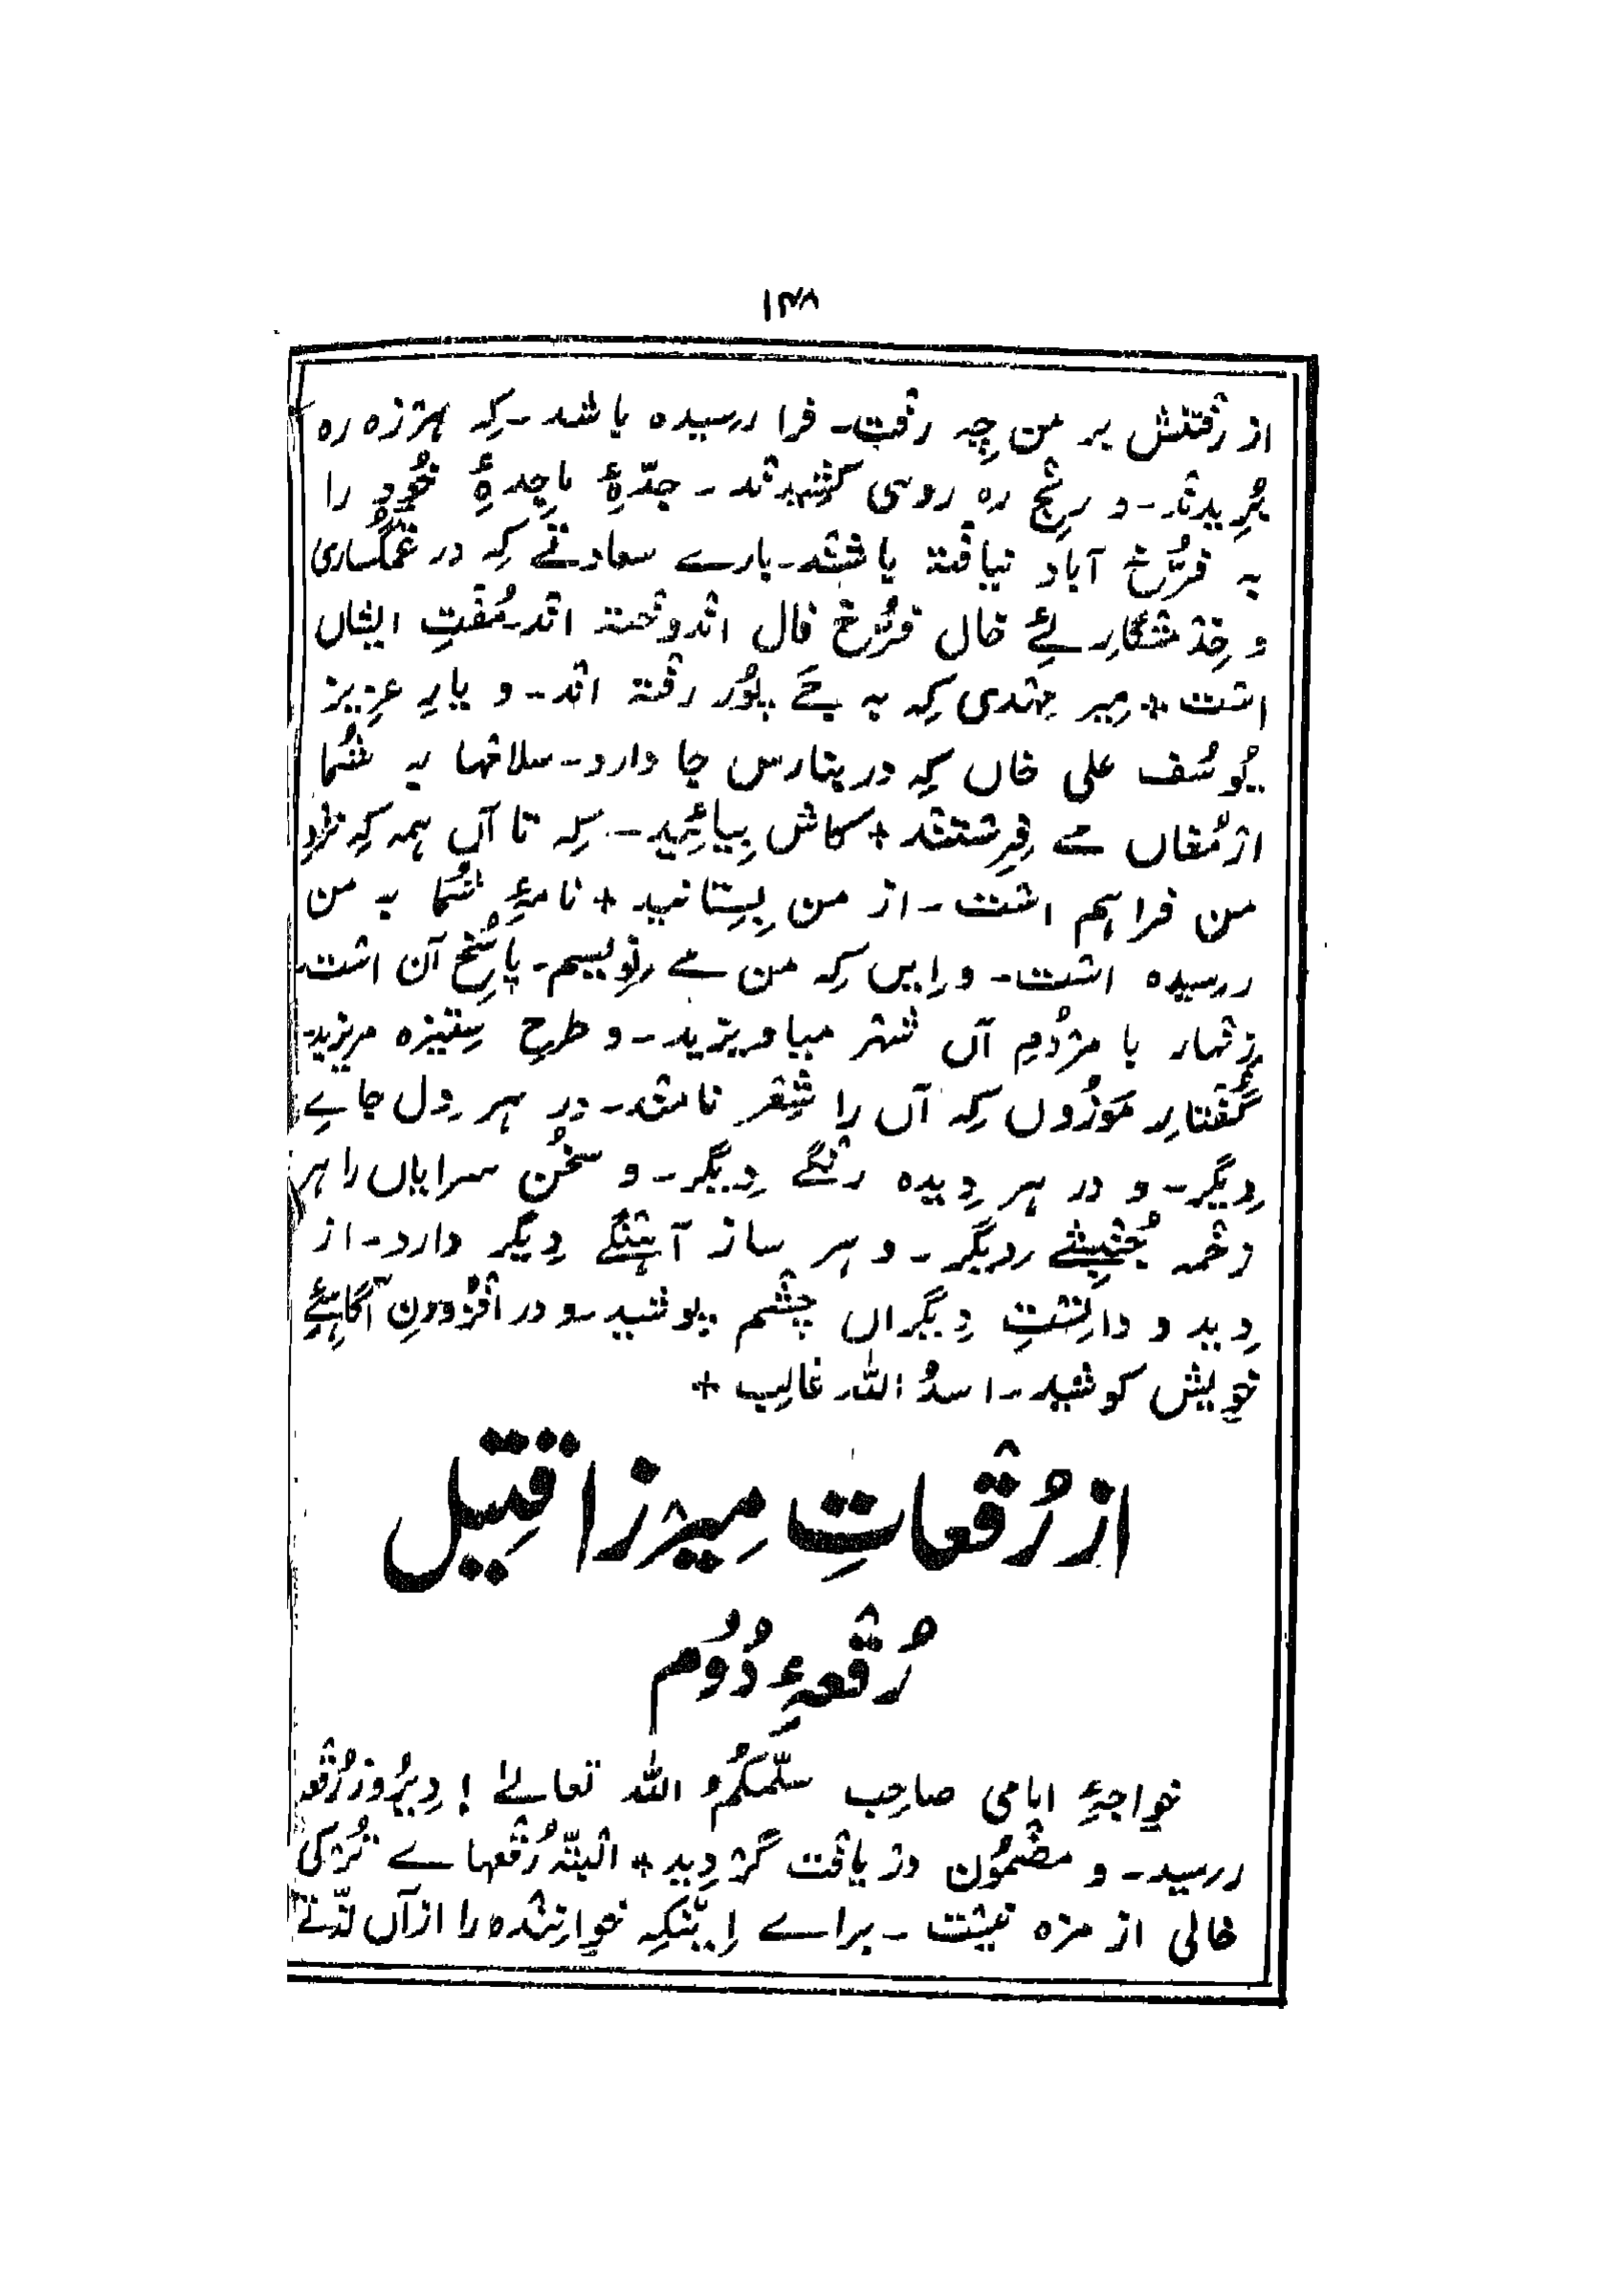 ۱۴۸
از رَفْتنَش بر من چِہ رفْت۔ فرا رسیدہ باشد۔ کِہ ہرْزہ رہ
بُرِیدنْد۔ و رنْجِ رہ روی کشِیدنْد۔ جدّۂِ ماجِدۂِ خُود را
بہ فرُّخ آباد نیافْتہ باشنْد۔ بارے سعادتے کِہ در غمْگُساری
و خِذمتْگارِیئِ خالِ فرُّخ فال انْدوخْتہ انْد۔ مُفْتِ ایشاں
اسْت + مِیر مہْدی کِہ بہ جَے پُور رفْتہ انْد۔ و یارِ عزِیز
یُوسُف علی خاں کِہ در بنارس جا دارد۔ سلامْہا بہ شُما
ارْمُغاں مے فِرِسْتنْد + کاش بِیائِید۔ کِہ تا آں ہمہ کِہ نزْدِ
من فراہم اسْت۔ از من بِسِتانید + نامۂِ شُما بہ من
رسیدہ اسْت۔ و اِیں کِہ من مے نِوِیسم۔ پاسُخِ آن اسْت۔
زِنْہار با مرْدُمِ آں شہْر میاوِیزید۔ و طرحِ سِتیزہ مریزید۔
گُفْتارِ مَوزُوں کِہ آں را شِعْر نامنْد۔ در ہر دِل جاے
دِیگر۔ و در ہر دِیدہ رنْگے دِیگر۔ و سخُن سرایاں را ہر
زخْمہ جُنْبِشے دِیگر۔ و ہر ساز آہنْگے دِیگر دارد۔ از
دِید و دانِسْتِ دِیگراں چشْم پوشید۔ و در افْزُودنِ آگاہِیئِ
خوِیش کوشید۔ اسدُ اللہ غالِب +
از رُقْعاتِ مِیرْزا قتِیل
رُقْعۂِ دُوُم
خواجۂِ امامی صاحِب سلّمکُمُ اللہ تعالےٰ! دِیرُوز رُقْعہ
رسید۔ و مضْمُون درْیافْت گرْدِید + الْبتّہ رُقْعہاے تُرْکی
خالی از مزہ نیسْت۔ براے اِینْکِہ خوانِنْدہ را از آں لذّتے